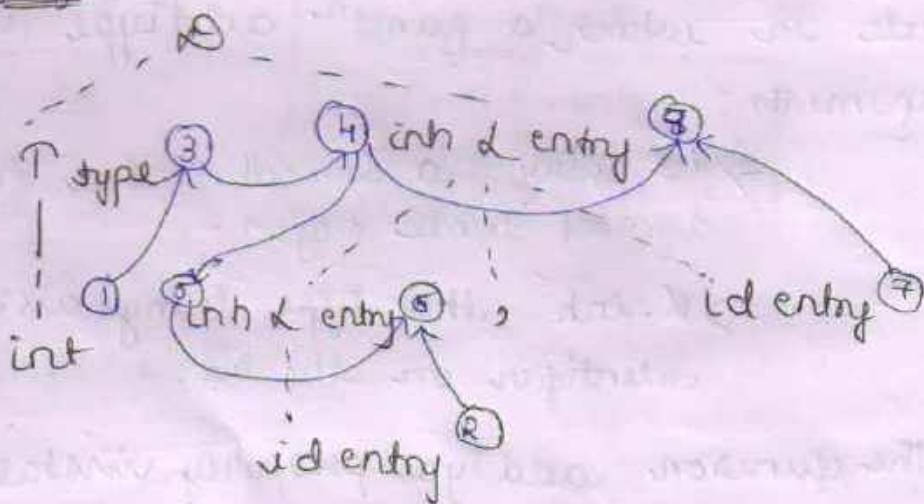 D
T type 3 4 inh L entry 8
int 1 5 inh L entry 6 , id entry 7
id entry 2